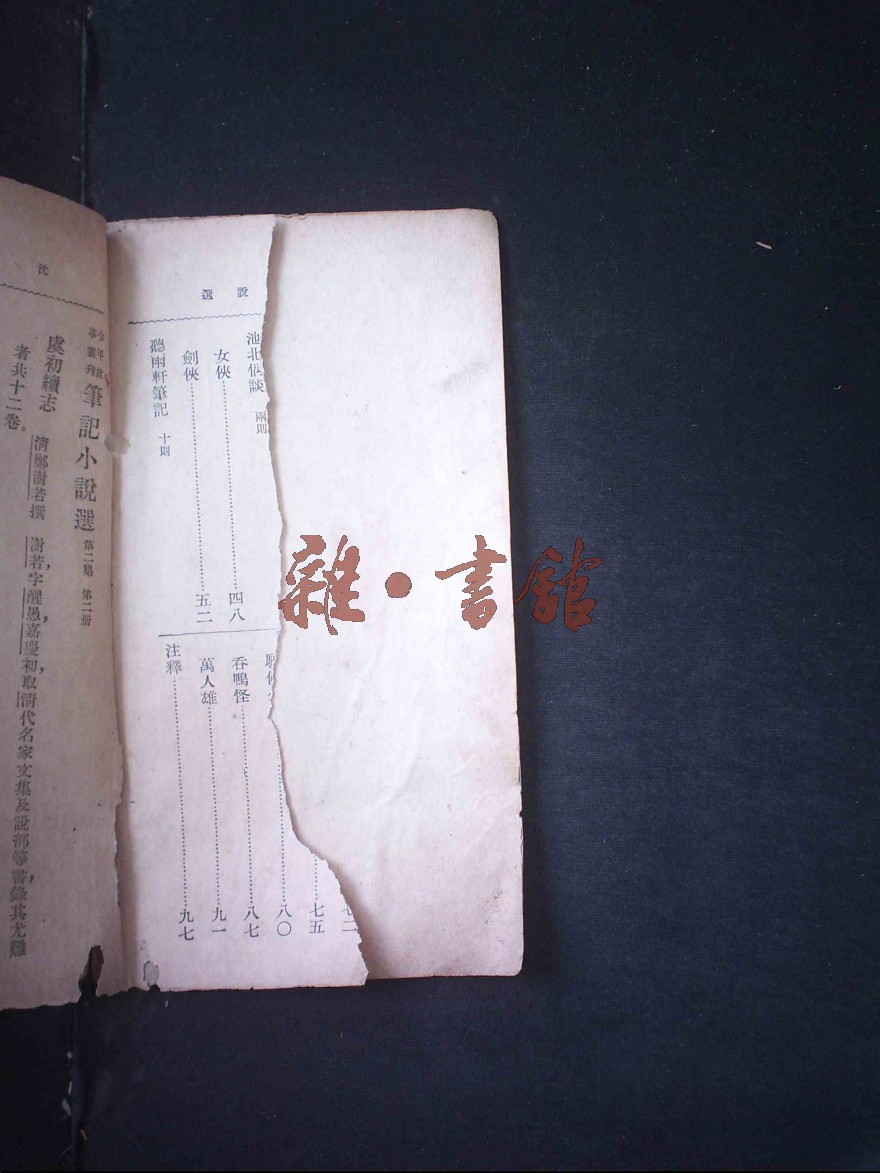 選 說
池北偶談 兩則
女俠 四八
劍俠 五二
聽雨軒筆記 十則
七五
八〇
吞鴨怪 八七
萬人雄 九一
注釋 九七
沈
少年故事叢刊 筆記小說選 第二集 第二册
虞初續志 清鄭澍若撰 澍若，字醒愚，嘉慶初，取清代名家文集及說部等書，錄其尤雅
者共十二卷。
雜·書館